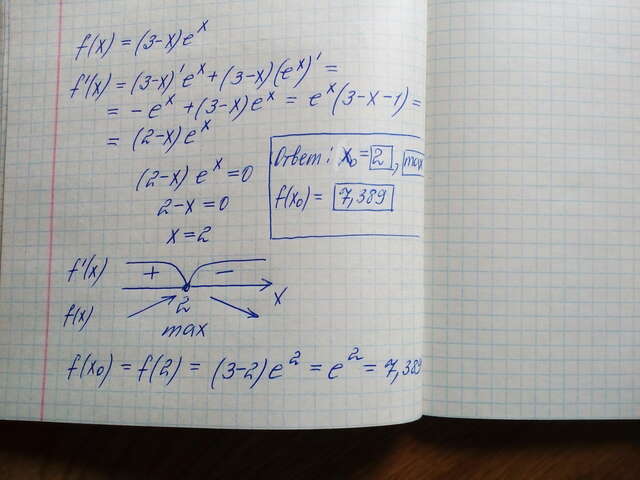 f(x) = (3-x)e^x
f'(x) = (3-x)'e^x + (3-x)(e^x)' =
= -e^x + (3-x)e^x = e^x(3-x-1) =
= (2-x)e^x
(2-x) e^x = 0
2-x = 0
x = 2
Ответ: x₀ = 2, max
f(x₀) = 7,389
f'(x) + -
2 x
f(x)
max
f(x₀) = f(2) = (3-2)e^2 = e^2 = 7,389